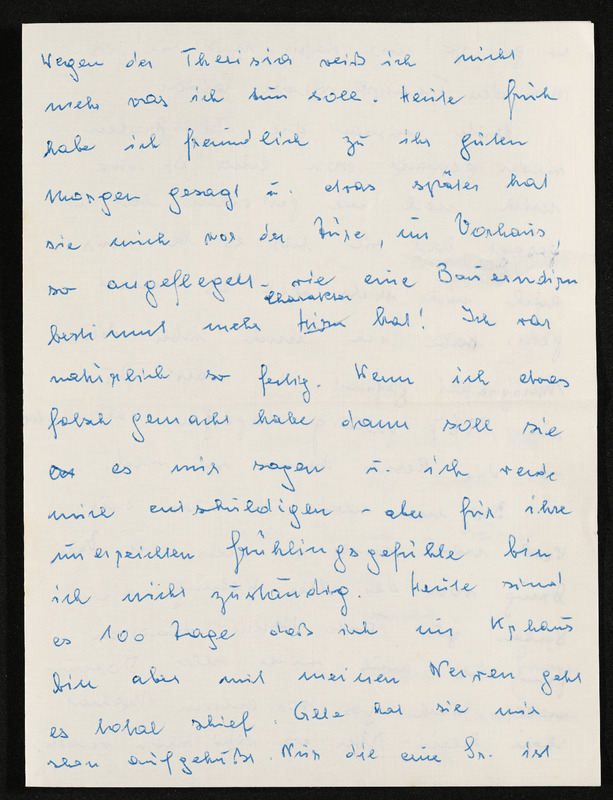 Wegen der Theresia weiß ich nicht
mehr was ich tun soll. Heute früh
habe ich freundlich zu ihr guten
Morgen gesagt u. etwas später hat
sie mich vor der Türe, im Vorhaus,
so angeflegelt - wie eine Bauerndirn
charakter
bestimmt mehr Hirn hat! Ich war
natürlich so fertig. Wenn ich etwas
falsch gemacht habe dann soll sie
es mir sagen u. ich werde
mich entschuldigen - aber für ihre
unerreichten Frühlingsgefühle bin
ich nicht zuständig. Heute sind
es 100 Tage daß ich im Krhaus
bin aber mit meinen Nerven geht
es total schief. Alle hat sie mir
schon aufgehußt. Nur die eine Sr. ist